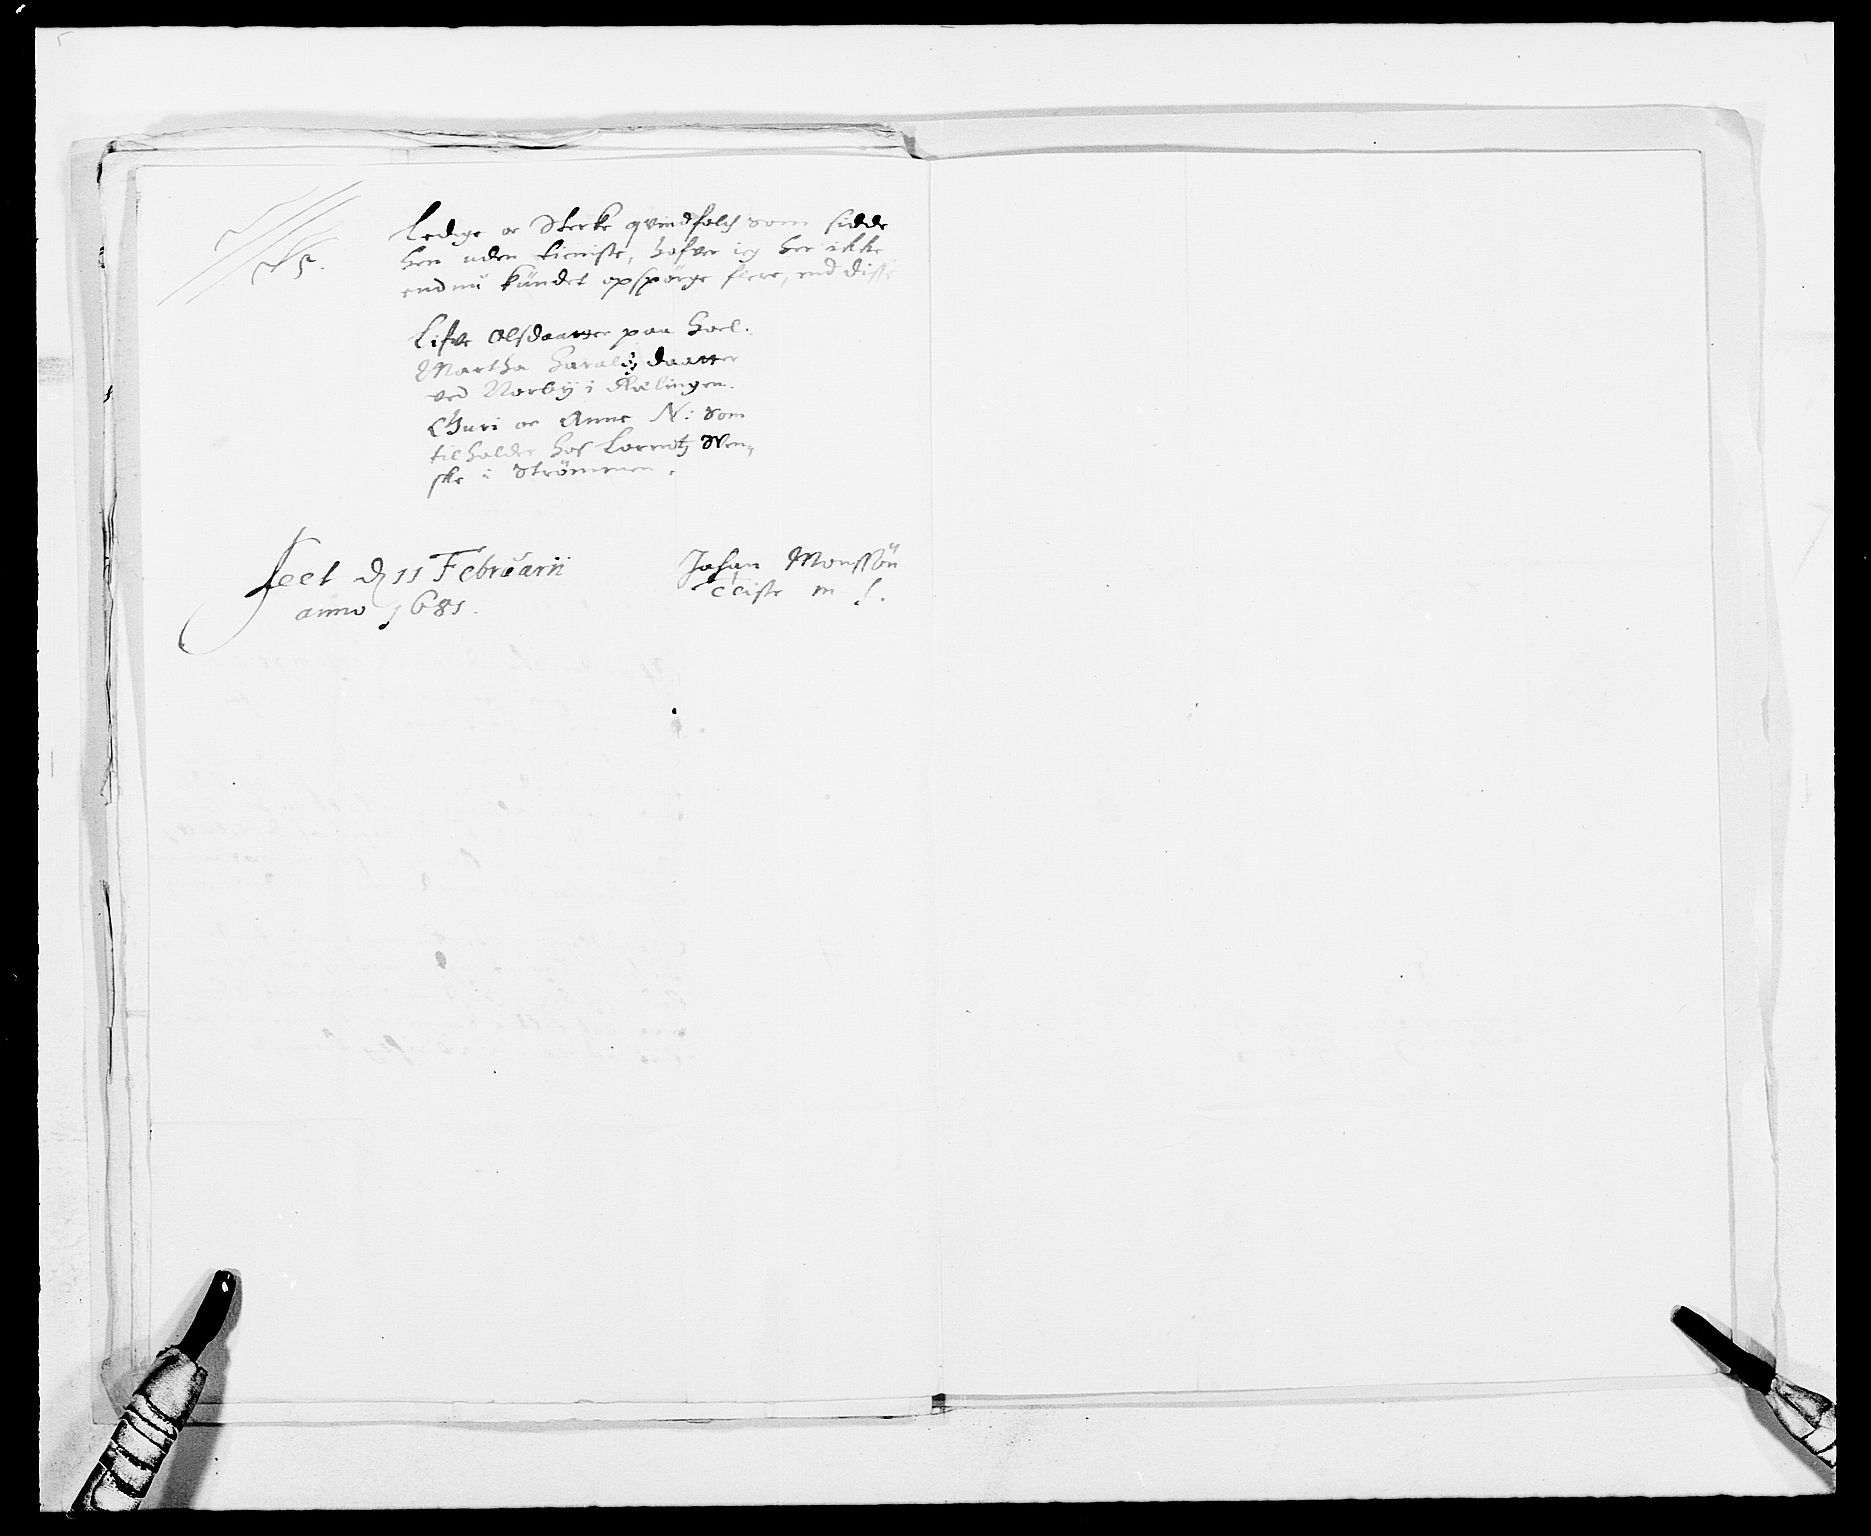 Ledige oc Sterke qvindfolch som sidde
hen uden tieniste, hafver ieg her ikke
endnu kündet opspörge flere, end disse
Lifve Olsdaatter paa Hoel.
Martha Haraldz daatter
ved Norby i Rælingen.
Guri oc Anne N: som
tilholder hos Lorentz Sven-
ske i Strømmen.
d 11 Februarii
anno 1681.
Johan Monssön
Teiste m